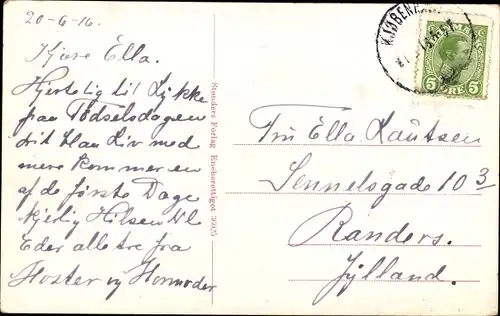 20-6-16.
Kjære Ella.
Hjertelig til Lykke
paa Fødselsdagen
dit Liv med
mere kommer en
af de første Dage
kjerlig Hilsen til
Eder alle tre fra
Moster og Mormoder
Stenders Forlag Eneberettiget 3925
KJØBENHA
5 ØRE 5
Fru Ella Lautsen
Sennelsgade 10 3
Randers.
Jylland.